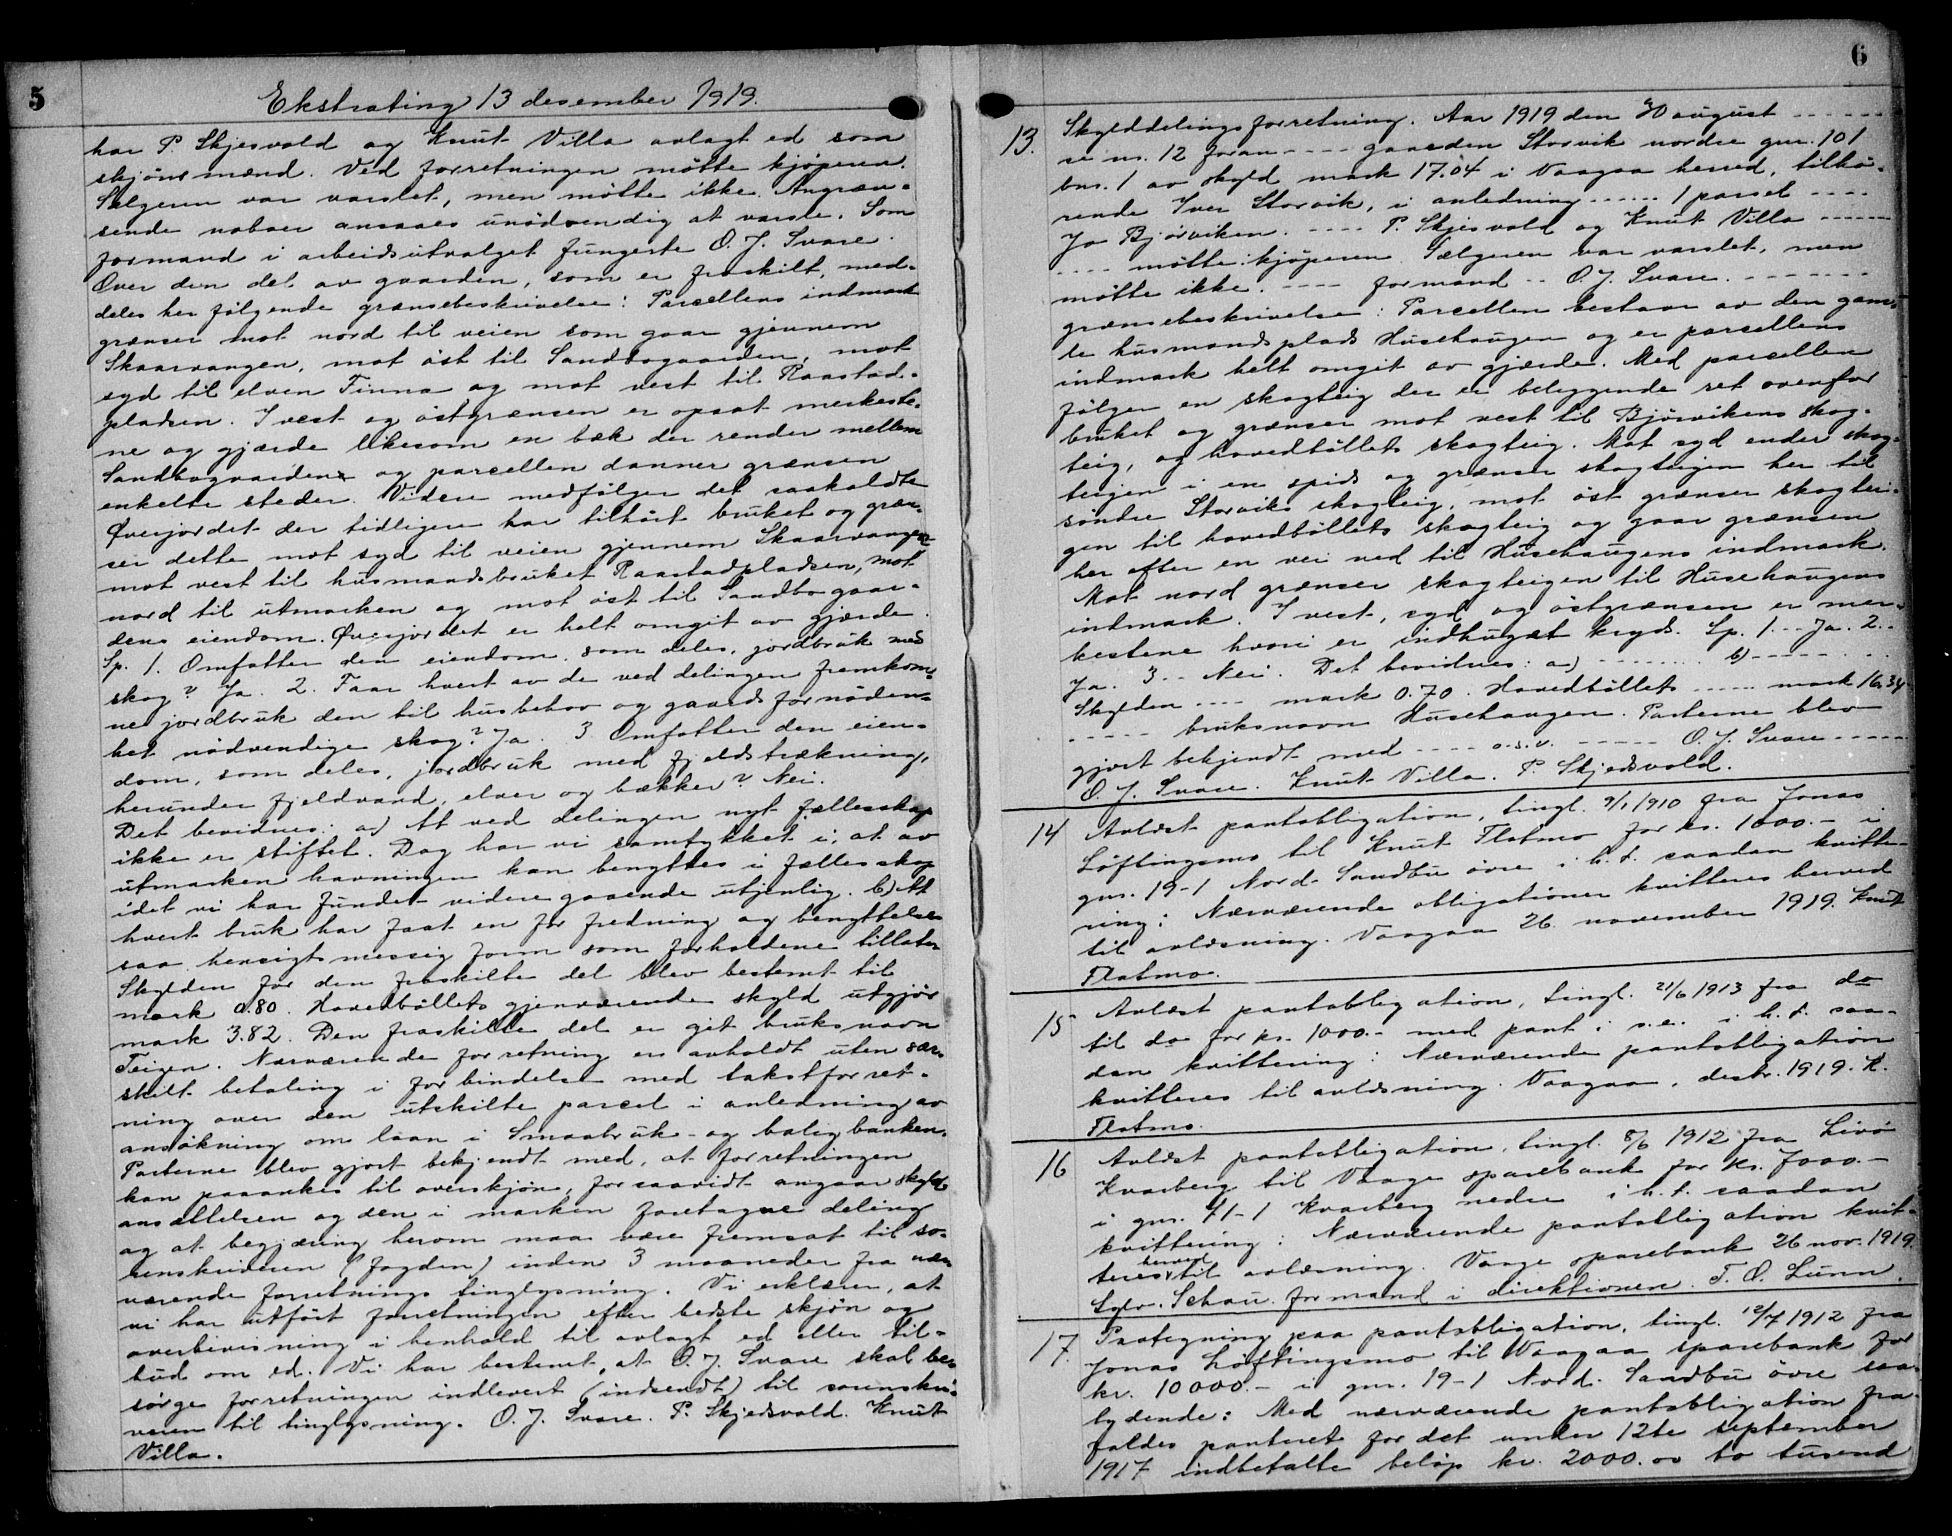 5
Ekstrating 13 desember 1919.
har P. Skjesvold og Knut Villa avlagt ed som
skjönsmænd. Ved forretningen mötte kjöperen.
Sælgeren var varslet, men mötte ikke. Angræn-
sende naboer ansaaes unödvendig at varsle. Som
formand i arbeidsutvalget fungerte O. J. Svare.
Over den del av gaarden, som er fraskilt, med-
deles her fölgende grænsebeskrivelse: Parcellens indmark
grænser mot nord til veien som gaar gjennem
Skaarvangen, mot öst til Sandbogaarden, mot
syd til elven Finna og mot vest til Raastad-
pladsen. I vest og östgrænsen er opsat merkeste-
ne og gjærde likesom en bæk der render mellem
Sandbogaarden og parcellen danner grænsen
enkelte steder. Videre medfölger det saakaldte
Överjordet der tidligere har tilhört bruket og græn-
ser dette mot syd til veien gjennem Skaarvangen
mot vest til husmandsbruket Raastadpladsen, mot
nord til utmarken og mot öst til Sandbogaar-
dens eiendom. Överjordet er helt omgit av gjærde.
Sp. 1. Omfatter den eiendom, som deles, jordbruk med
skog? Ja. 2. Faar hvert av de ved delingen fremkom-
ne jordbruk den til husbehov og gaardsfornöden-
het nödvendige skog? Ja. 3 Omfatter den eien-
dom, som deles, jordbruk med fjeldstrækning,
herunder fjeldvand, elver og bækker? Nei.
Det bevidnes: a) At ved delingen nyt fællesskap
ikke er stiftet. Dog har vi samtykket i, at av
utmarken havningen kan benyttes i fællesskap
idet vi har fundet videregaaende utjenlig. b) At
hvert bruk har faat en for fredning og benyttelse
saa hensigtsmessig form som forholdene tillater
Skylden for den fraskilte del blev bestemt til
mark 0.80. Hovedböllets gjenværende skyld utgjör
mark 3.82. Den fraskilte del er git bruksnavn
Teigen. Nærværende forretning er avholdt uten sær-
skilt betaling i forbindelse med takstforret-
ning over den utskilte parcel i anledning av
ansökning om laan i Smaabruk- og boligbanken.
Parterne blev gjort bekjendt med, at forretningen
kan paaankes til overskjön, forsaavidt angaar skyld-
ansættelsen og den i marken foretagne deling
og at begjæring herom maa være fremsat til so-
renskriveren (fogden) inden 3 maaneder fra nær-
værende forretnings tinglysning. Vi erklærer, at
vi har utfört forretningen efter bedste skjön og
overbevisning i henhold til avlagt ed eller til-
bud om ed. Vi har bestemt, at O. J. Svare skal be-
sörge forretningen indlevert (indsendt) til sorenskri-
veren til tinglysning. O. J. Svare. P. Skjedsvold. Knut
Villa.
6
13. Skylddelingsforretning. Aar 1919 den 30 august -----
se nr. 12 foran ---- gaarden Storvik nordre gnr. 101
bnr. 1 av skyld mark 17.04 i Vaagaa herred, tilhö-
rende Iver Storvik, i anledning ------ 1 parcel ----
Jo Bjørviken. ---- P. Skjesvold og Knut Villa -----
---- mötte: kjöperen. Sælgeren var varslet, men
mötte ikke. ---- formand -- O. J. Svare. -------
grænsebeskrivelse: Parcellen bestaar av den gam-
le husmandsplads Husehaugen og er parcellens
indmark helt omgit av gjærde. Med parcellen
fölger en skogteig der er beliggende ret ovenfor
bruket og grænser mot vest til Bjørvikens skog-
teig, og hovedböllets skogteig. Mot syd ender skog-
teigen i en spids og grænser skogteigen her til
söndre Storviks skogteig, mot öst grænser skogtei-
gen til hovedböllets skogteig og gaar grænsen
her efter en vei ned til Husehaugens indmark.
Mot nord grænser skogteigen til Husehaugens
indmark. I vest, syd og östgrænsen er mer-
kestene hvori er indhugget kryds. Sp. 1. - Ja. 2. -
Ja. 3. - Nei. Det bevidnes: a) -------- b) -------
Skylden ---- mark 0.70. Hovedböllets ----- mark 16,34
----- bruksnavn Husehaugen. Parterne blev
gjort bekjendt med ---- o.s.v. ----- O. J. Svare -----
O. J. Svare. Knut Villa. P. Skjedsvold.
14 Avlæst pantobligation, tingl. 9/1 1910 fra Jonas
Löftingsmo til Knut Flatmo for kr. 1000.- i
gnr. 19-1 Nord. Sandbu övre i h. t. saadan kvitte-
ring: Nærværende obligationer kvitteres herved
til avlæsning. Vaagaa 26 november 1919. Knut
Flatmo.
15 Avlæst pantobligation, tingl. 21/6 1913 fra do
til do for kr. 1000.- med pant i s.e. i h. t. saa-
dan kvittering: Nærværende pantobligation
kvitteres til avlæsning. Vaagaa, desbr. 1919. K.
Flatmo.
16 Avlæst pantobligation, tingl. 8/6 1912 fra Livö
Kvarberg til Vaage sparebank for kr. 7000.-
i gnr. 71-1 Kvarberg nedre i h. t. saadan
kvittering: Nærværende pantobligation kvit-
teres herved til avlæsning. Vaage sparebank 26 nov. 1919
Sylv. Schou. formand i direktionen. T. O. Lunn.
17. Paategning paa pantobligation, tingl. 12/7 1912 fra
Jonas Löftingsmo til Vaagaa sparebank for
kr. 10000.- i gnr. 19-1 Nord. Sandbu övre saa-
lydende: Med nærværende pantobligation fra-
faldes panteret for det under 12te september
1917 indbetalte belöp kr. 2000.oo to tusend